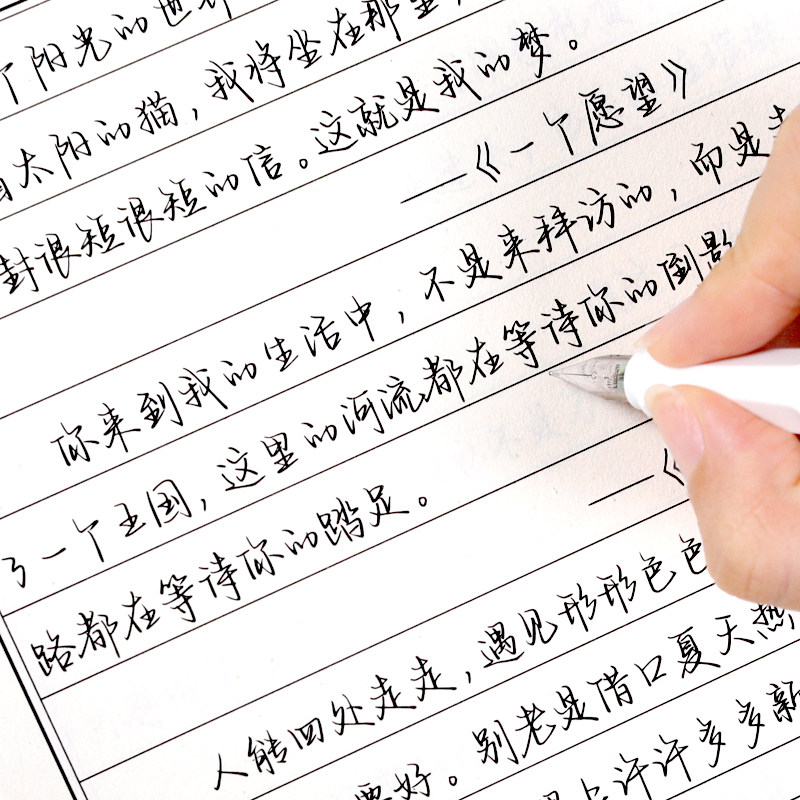 个阳光的世
太阳的猫，我将坐在那里，
封很短很短的信。这就是我的梦。
——《一个愿望》
你来到我的生活中，不是来拜访的，而是
了一个王国，这里的河流都在等待你的倒影
路都在等待你的踏足。
——《
人能四处走走，遇见形形色色
要好。别老是借口夏天热
许许多多新